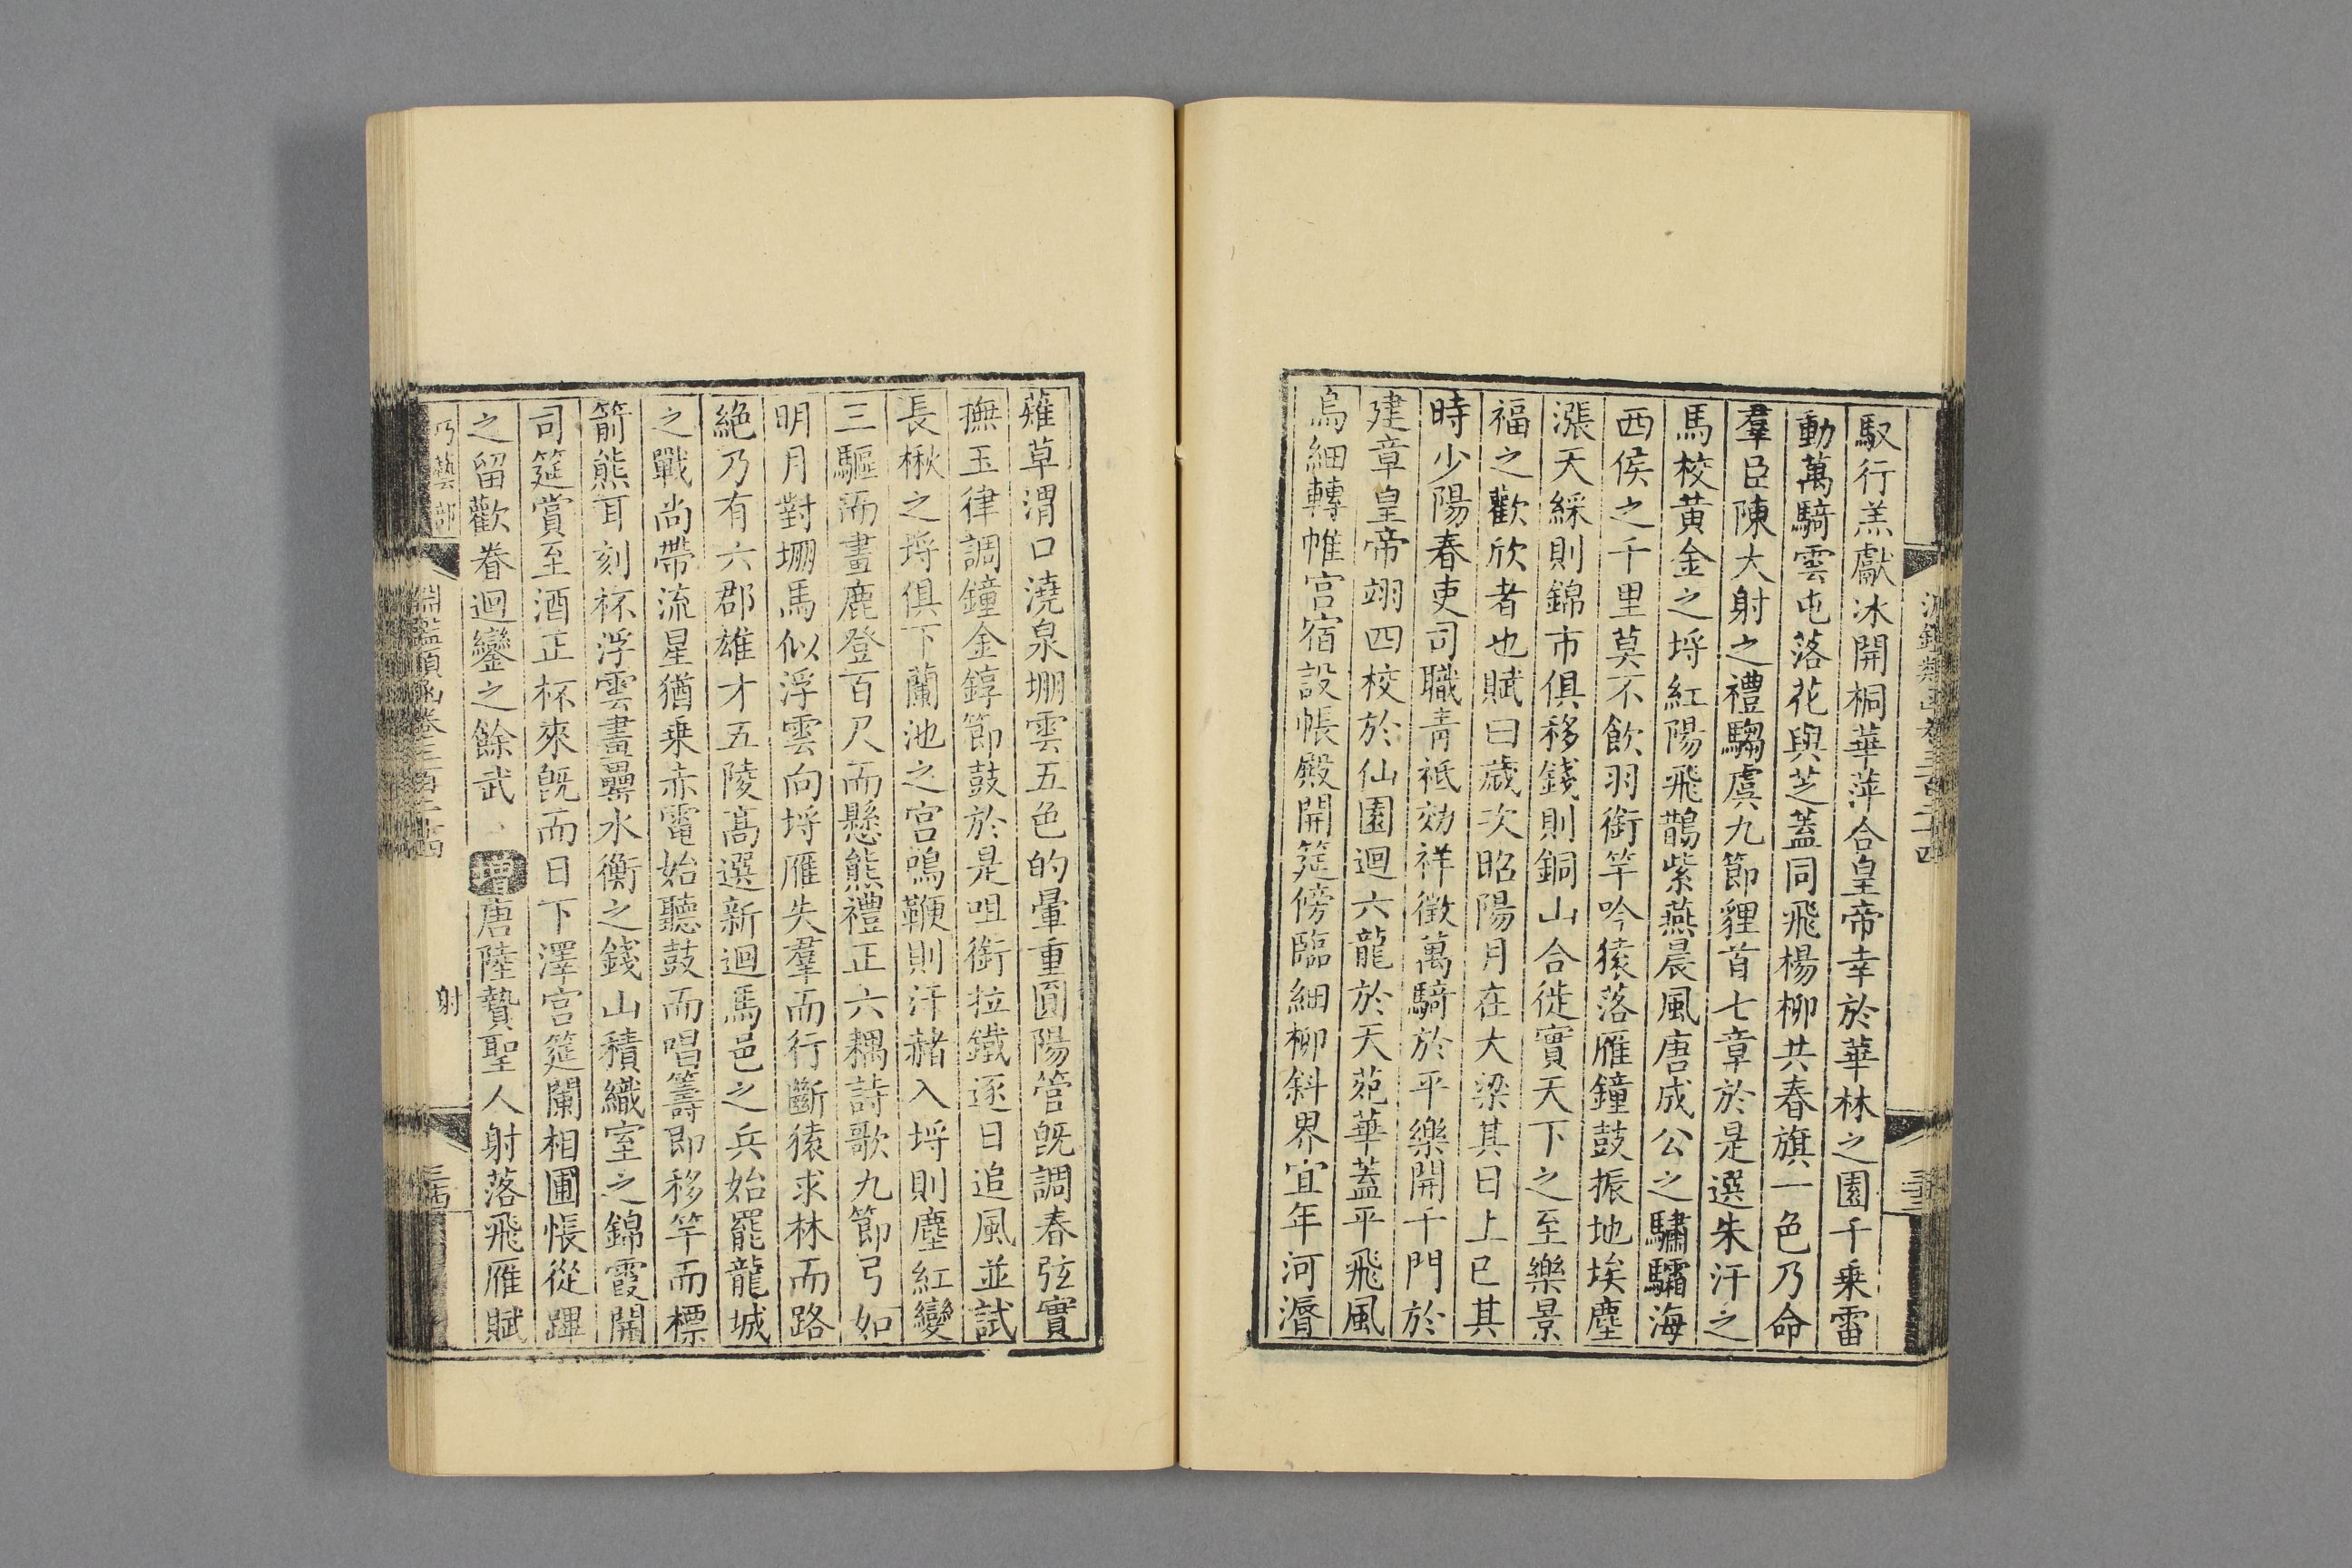 馭行羔獻冰開桐華萍合皇帝幸於華林之園千乗雷
動萬騎雲屯落花與芝蓋同飛楊柳共春旗一色乃命
羣臣陳大射之禮騶虞九節貍首七章於是選朱汗之
馬校黄金之埒紅陽飛鵲紫燕晨風唐成公之驌驦海
西侯之千里莫不飲羽銜竿吟猿落雁鐘鼓振地埃塵
漲天綵則錦市俱移錢則銅山合徙實天下之至樂景
福之歡欣者也賦曰歳次昭陽月在大梁其日上巳其
時少陽春吏司職青祗効祥徵萬騎於平樂開千門於
建章皇帝翊四校於仙園迴六龍於天苑華蓋平飛風
烏細轉帷宫宿設帳殿開筵傍臨細柳斜界宜年河湣
薙草渭口澆泉堋雲五色的暈重圓陽管旣調春弦實
撫玉律調鐘金錞節鼓於是咀銜拉鐵逐日追風並試
長楸之埒俱下蘭池之宫鳴鞭則汗赭入埒則塵紅變
三驅而畫鹿登百尺而懸熊禮正六耦詩歌九節弓如
明月對堋馬似浮雲向埒雁失羣而行斷猿求林而路
絶乃有六郡雄才五陵高選新迴馬邑之兵始罷龍城
之戰尚帶流星猶乗赤電始聽鼓而唱籌即移竿而標
箭熊耳刻杯浮雲畫罍水衡之錢山積織室之錦霞開
司筵賞至酒正杯來旣而日下澤宫筵闌相圃悵從蹕
之留歡眷迴鑾之餘武 增唐陸贄聖人射落飛雁賦
巧藝部 淵鑑類函卷三百二十四 射